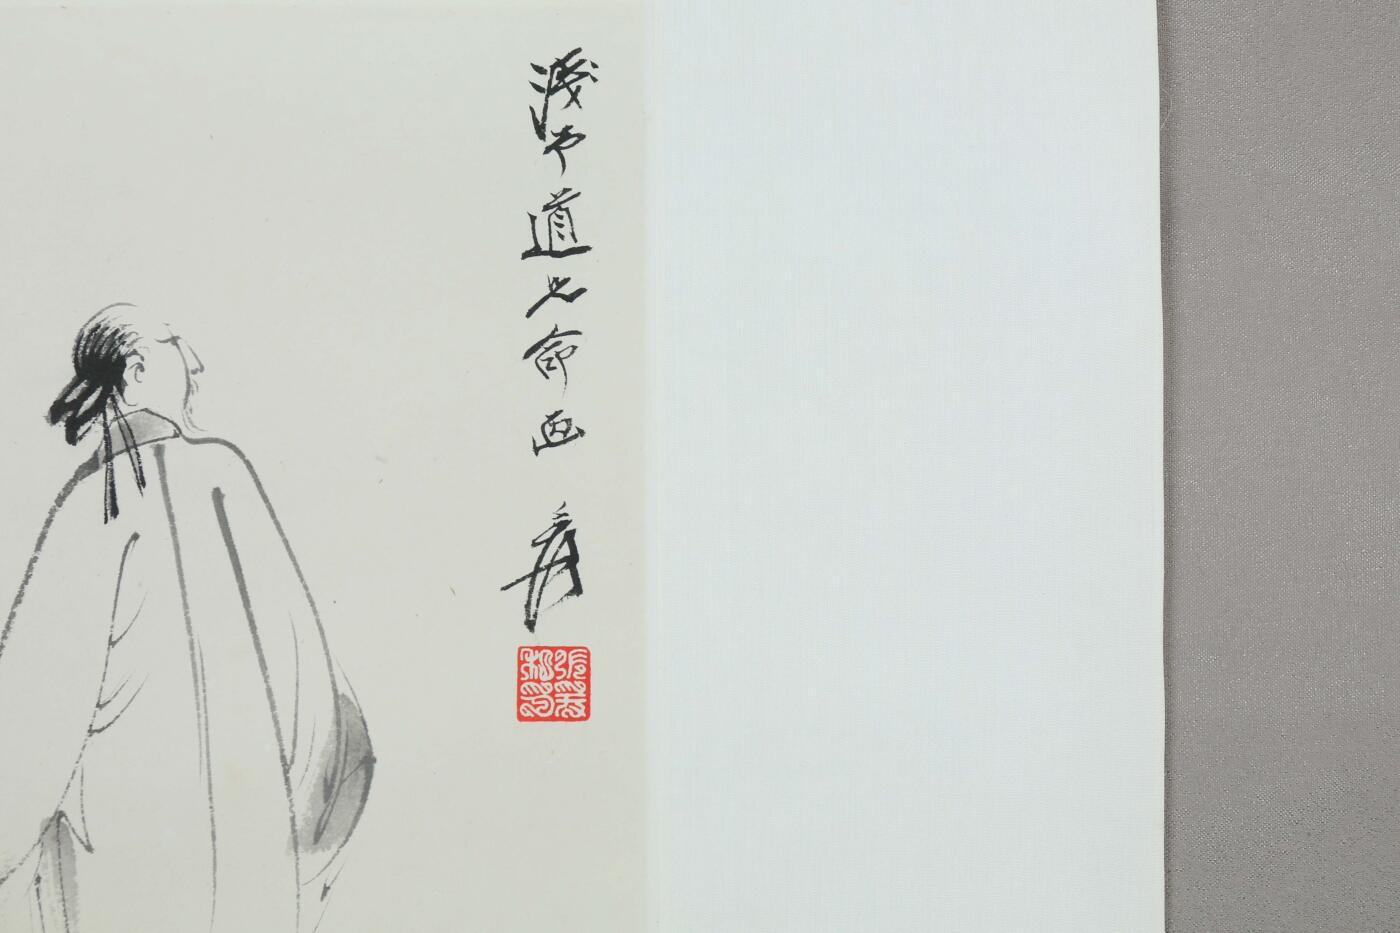 淺予道兄命画 爰
張爰
私印